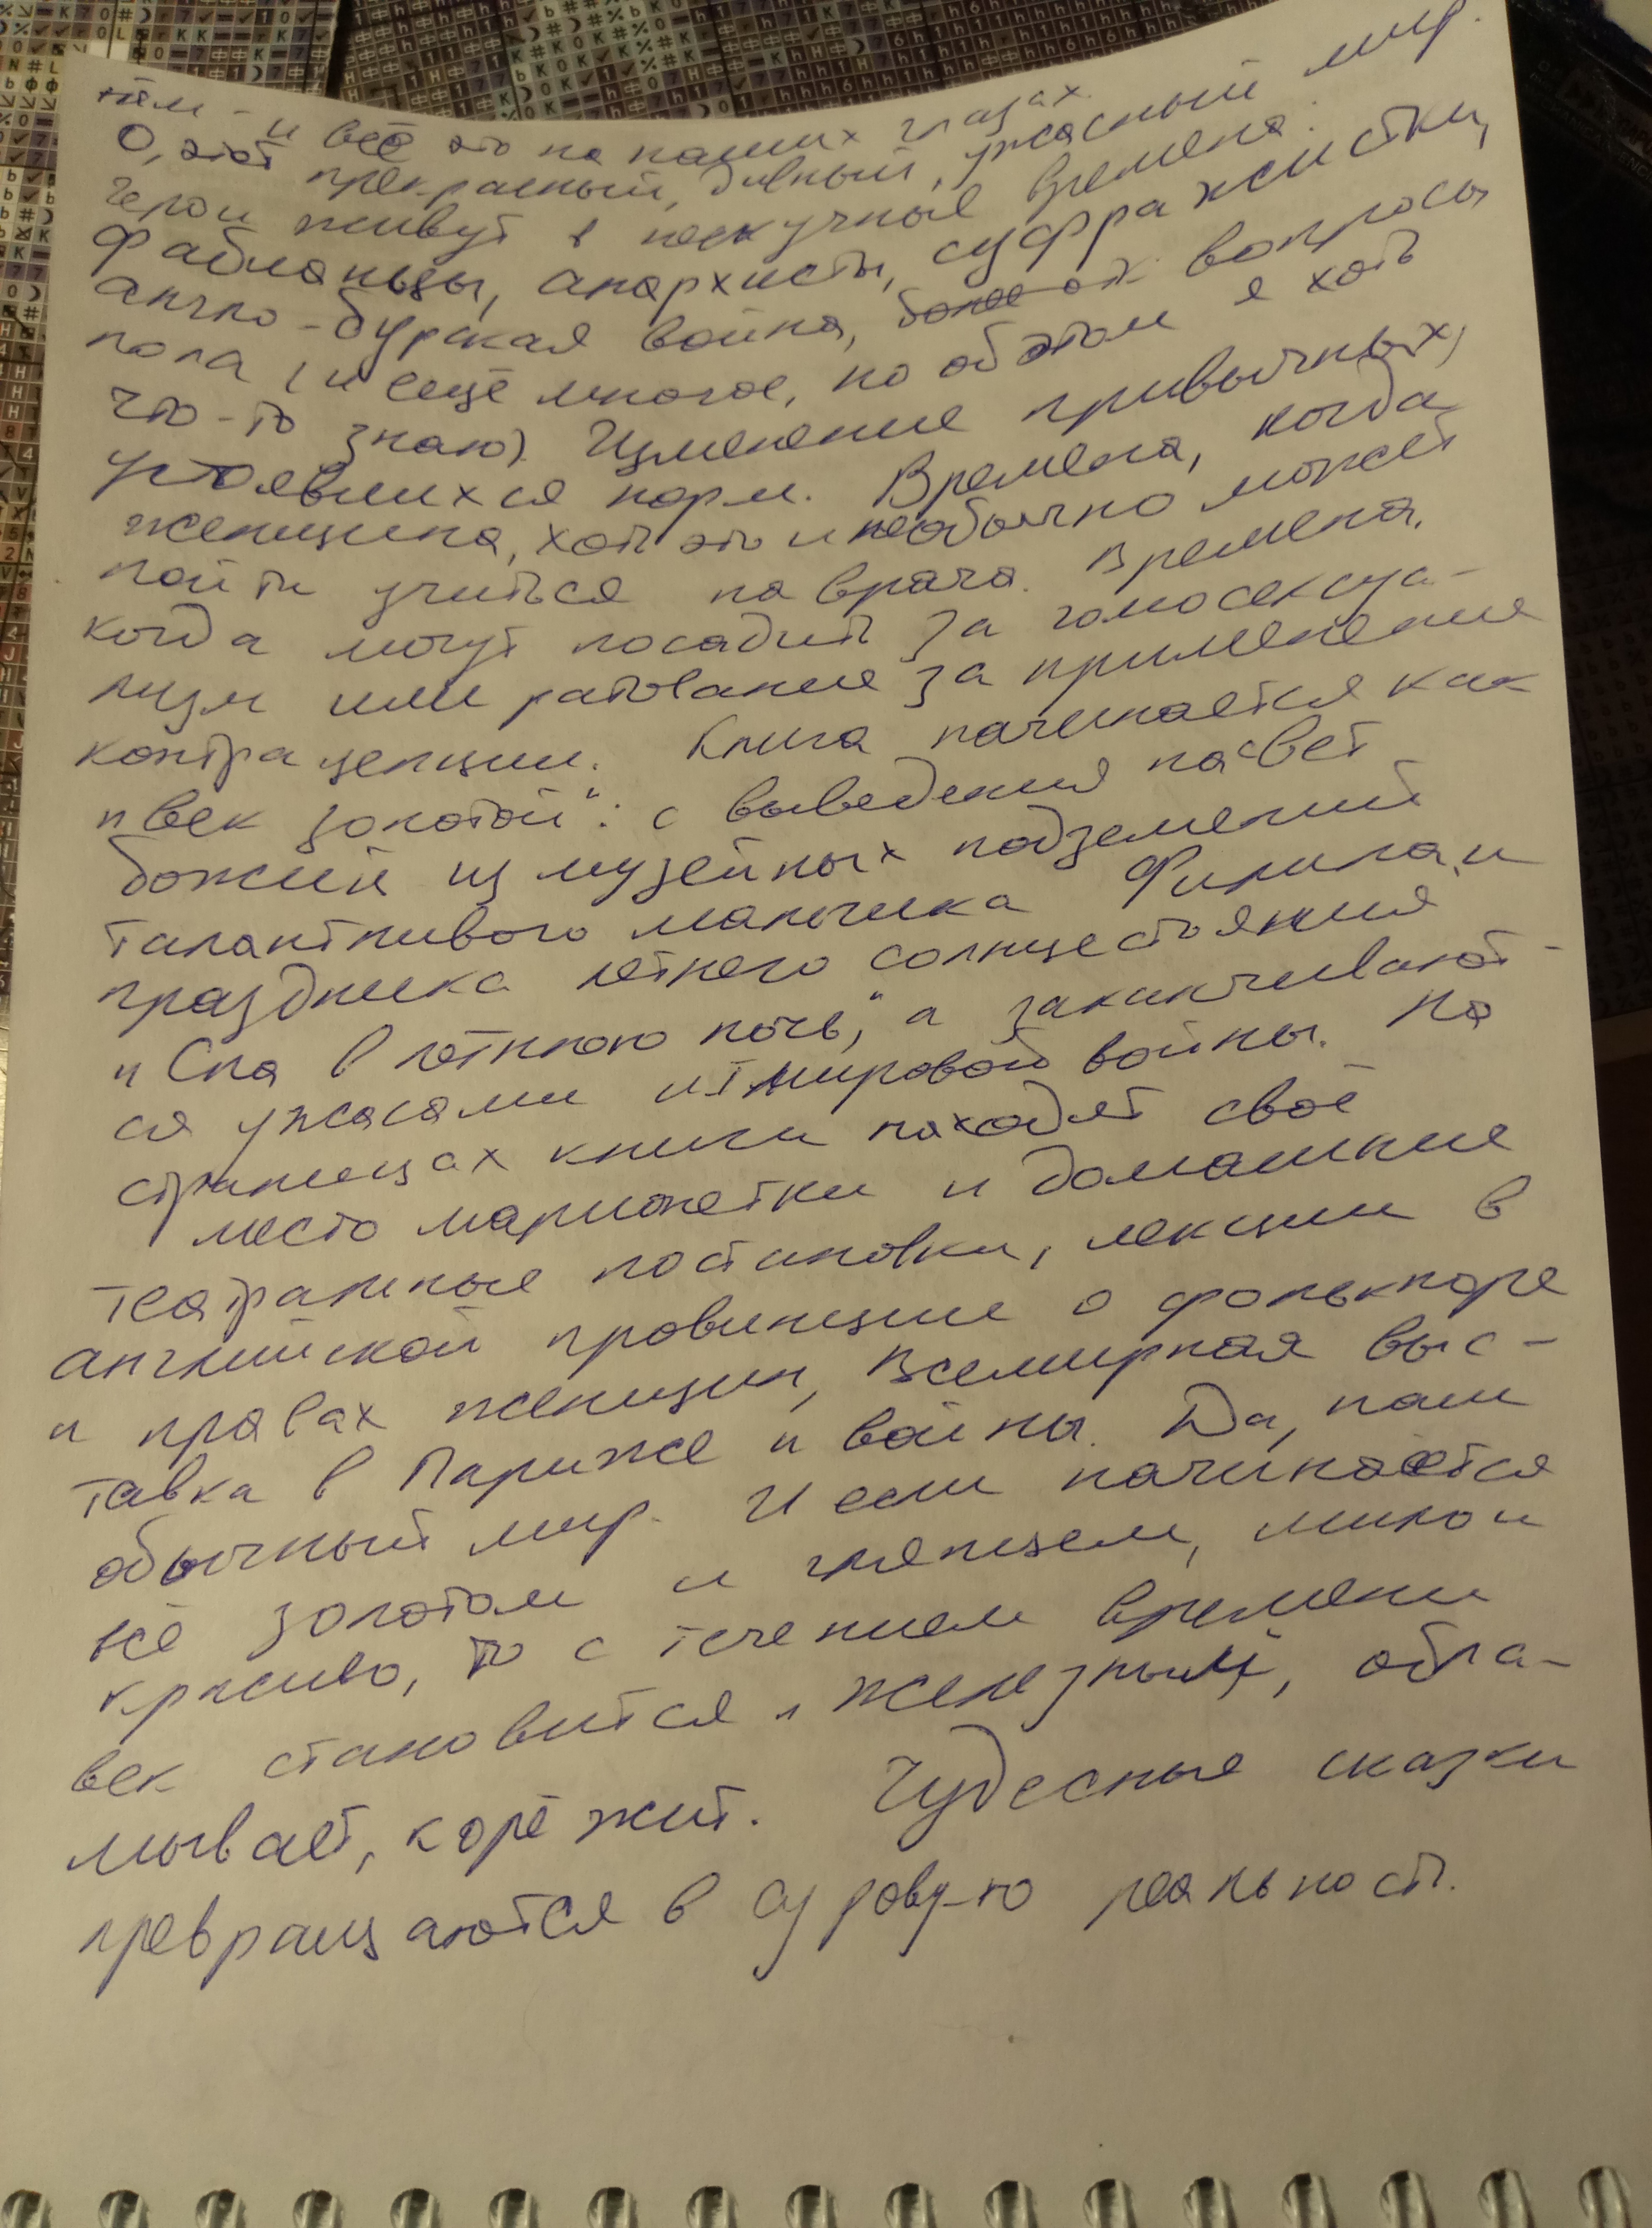 тям - и всё это на наших глазах.
О, этот прекрасный, дивный, ужасный мир.
Герои живут в нескучные времена.
Фабианцы, анархисты, суфражистки,
англо-бурская война, вопросы
пола (и ещё многое, но об этом я хоть
что-то знаю). Изменение привычных,
устоявшихся норм. Времена, когда
женщина, хоть это и необычно может
пойти учиться на врача. Времена,
когда могут посадить за гомосексуа-
лизм или ратование за применение
контрацепции. Книга начинается как
"век золотой": с выведения на свет
божий из музейных подземелий
талантливого мальчика Филипа, и
праздника летнего солнцестояния
"Сна в летнюю ночь," а заканчивают-
ся ужасами I мировой войны. На
страницах книги находят своё
место марионетки и домашние
театральные постановки, лекции в
английской провинции о фольклоре
и правах женщин, Всемирная выс-
тавка в Париже и войны. Да, наш
обычный мир. И если начинается
всё золотом и глянцем, мило и
красиво, то с течением времени
век становится "железный", обла-
мывает, корёжит. Чудесные сказки
превращаются в суровую реальность.